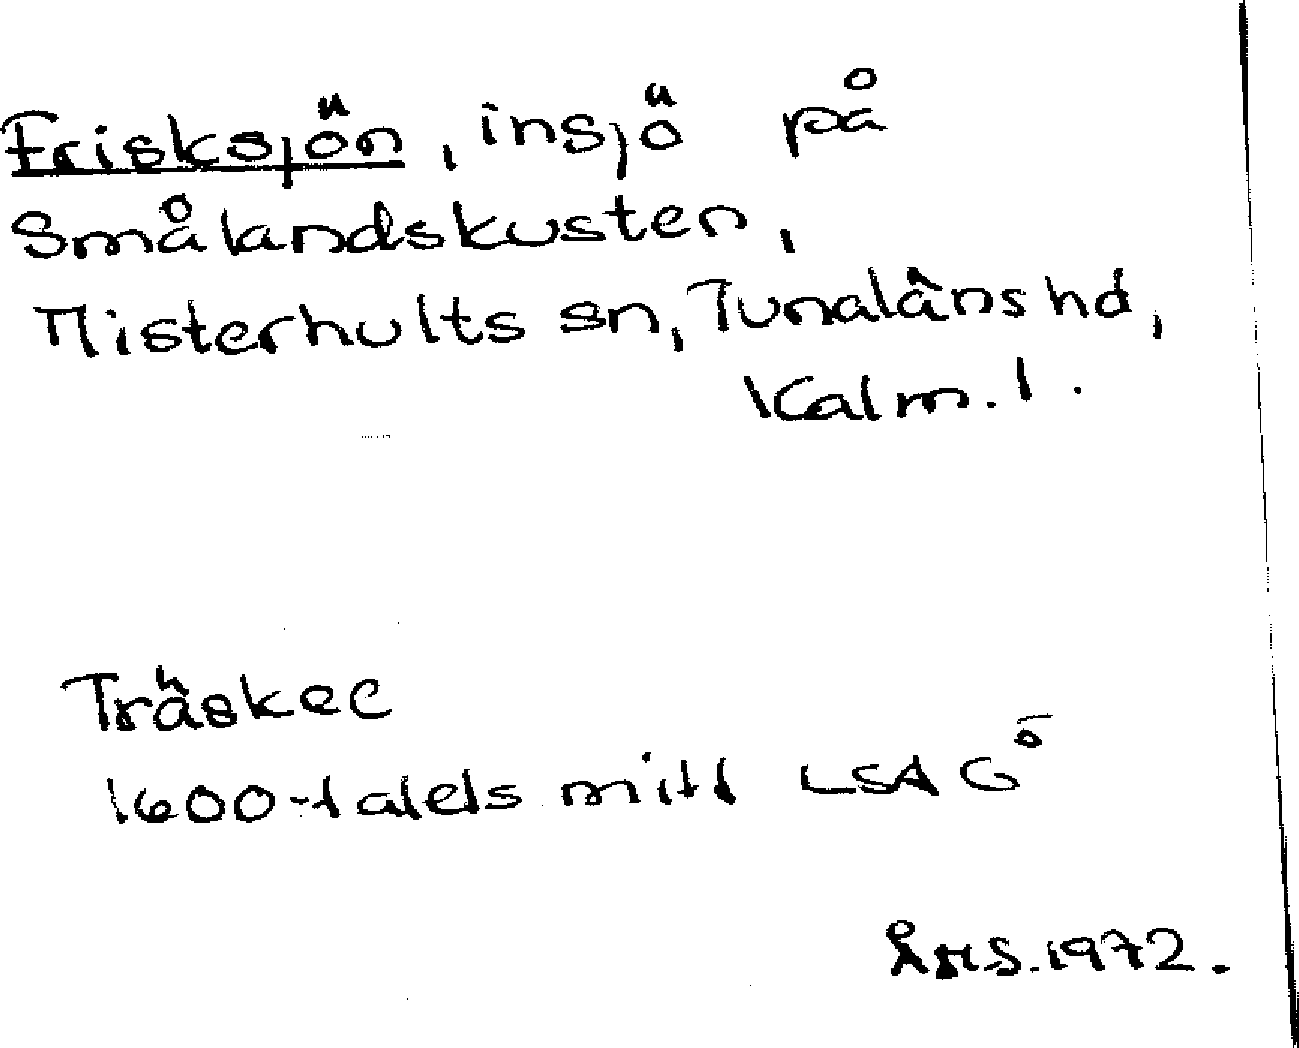 Frisksjön, insjö på
Smålandskusten,
Misterhults sn, Tunaläns hd,
Kalm. l.
Träskec
1600-talets mitt LSA G⁵
ÅHS. 1972.